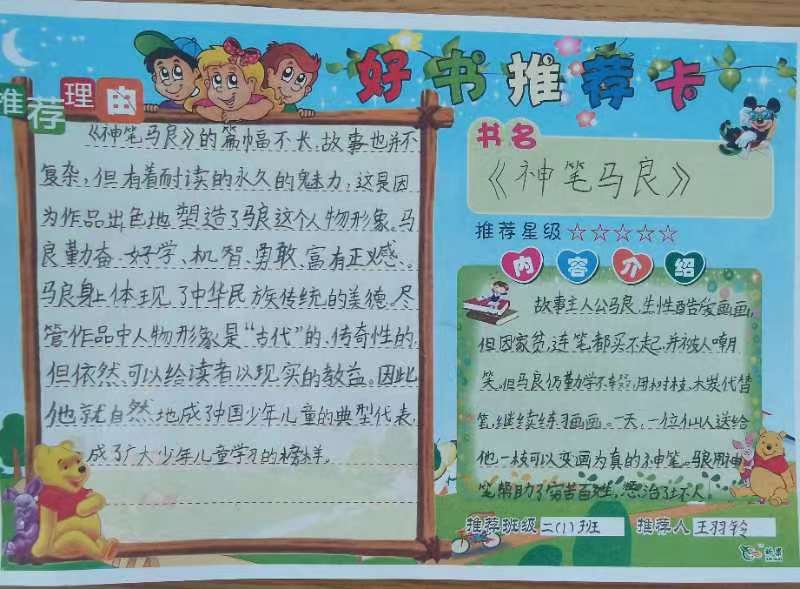 好书推荐卡
推荐理由
《神笔马良》的篇幅不长,故事也并不
复杂,但有着耐读的永久的魅力,这是因
为作品出色地塑造了马良这个人物形象。马
良勤奋、好学、机智、勇敢、富有正义感。
马良身上体现了中华民族传统的美德。尽
管作品中人物形象是“古代”的、传奇性的,
但依然可以给读者以现实的教益。因此
他就自然地成了中国少年儿童的典型代表,
成了广大少年儿童学习的榜样。
书名
《神笔马良》
推荐星级☆☆☆☆☆
内容介绍
故事主人公马良,生性酷爱画画,
但因家贫,连笔都买不起,并被人嘲
笑。但马良仍勤学不辍,用树枝、木炭代替
笔,继续练习画画。一天,一位仙人送给
他一枝可以变画为真的神笔。马良用神
笔帮助了穷苦百姓,惩治了坏人
推荐班级 二(1)班 推荐人 王羽铃